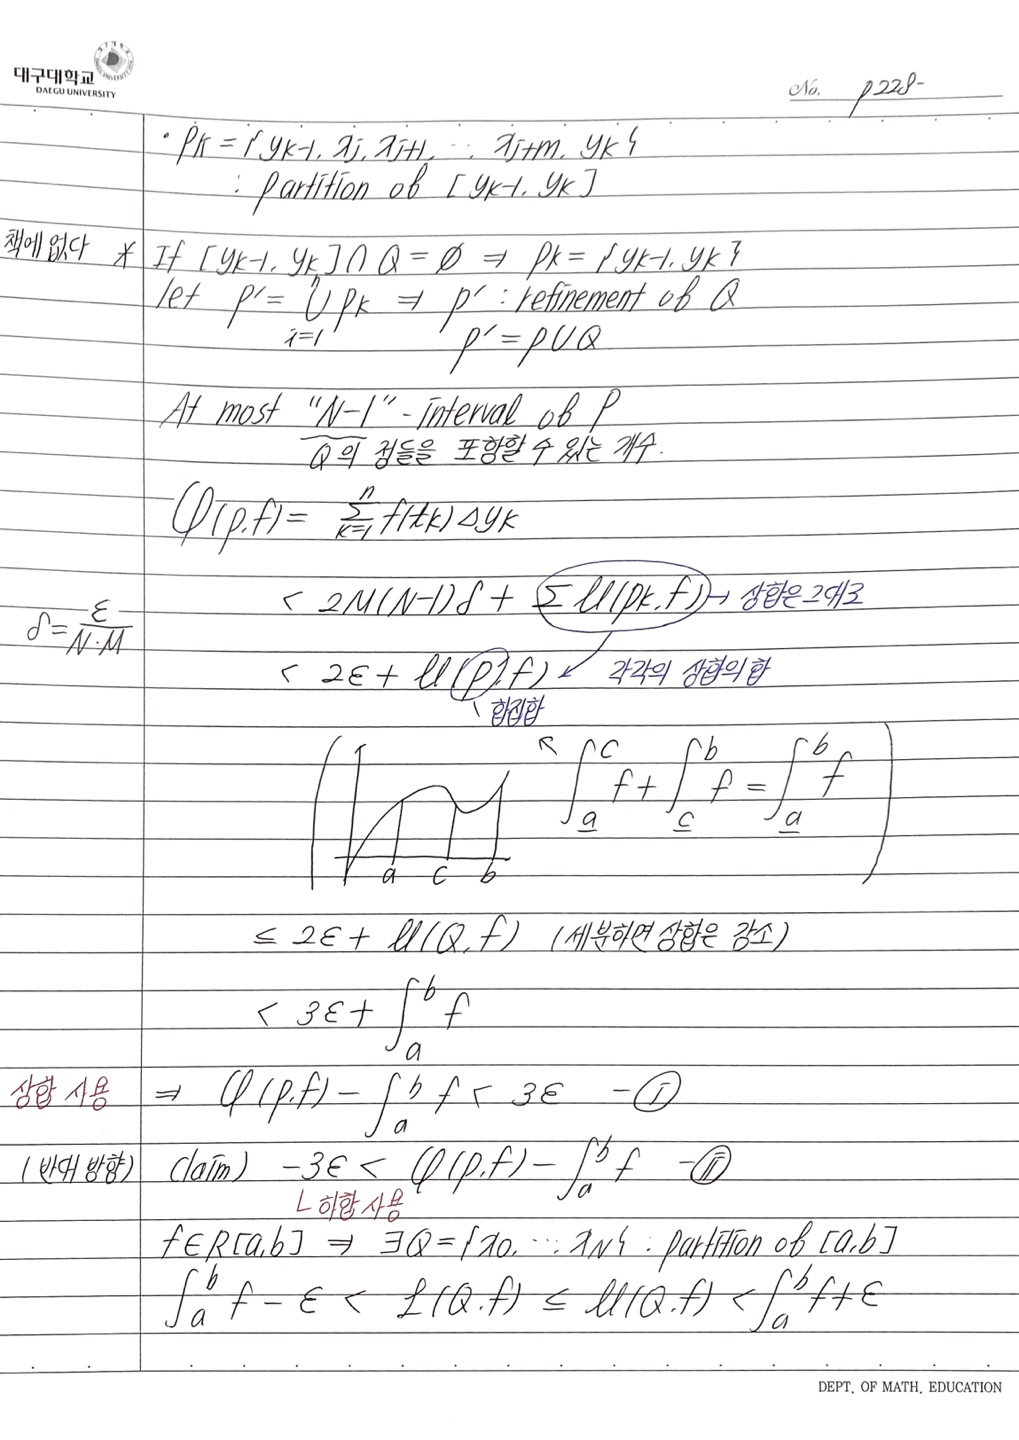 대구대학교
DAEGU UNIVERSITY
No. p228-
· Pk = { yk-1, xj, xj+1, ··· xj+m, yk }
: partition of [yk-1, yk]
책에 없다 * If [yk-1, yk] ∩ Q = ∅ ⇒ Pk = { yk-1, yk }
let p' = ⋃ⁿᵢ₌₁ Pk ⇒ p' : refinement of Q
p' = p ∪ Q
At most "N-1" - interval of P
Q의 점들을 포함할 수 있는 개수.
φ(p,f) = Σⁿₖ₌₁ f(tk) Δyk
< 2M(N-1)δ + Σ U(pk, f) → 상합은 그대로
δ = ε / N·M
< 2ε + U(p', f) ↙ 각각의 상합의 합
합집합
∫_a^c f + ∫_c^b f = ∫_a^b f
a c b
≤ 2ε + U(Q, f) (세분하면 상합은 감소)
< 3ε + ∫_a^b f
상합 사용 ⇒ φ(p,f) - ∫_a^b f < 3ε - Ⓘ
(반대 방향) claim) -3ε < φ(p,f) - ∫_a^b f - Ⅱ
ㄴ 하합 사용
f∈R[a,b] ⇒ ∃Q = { x0, ··· xN } : partition of [a,b]
∫_a^b f - ε < L(Q,f) ≤ U(Q,f) < ∫_a^b f + ε
DEPT. OF MATH. EDUCATION